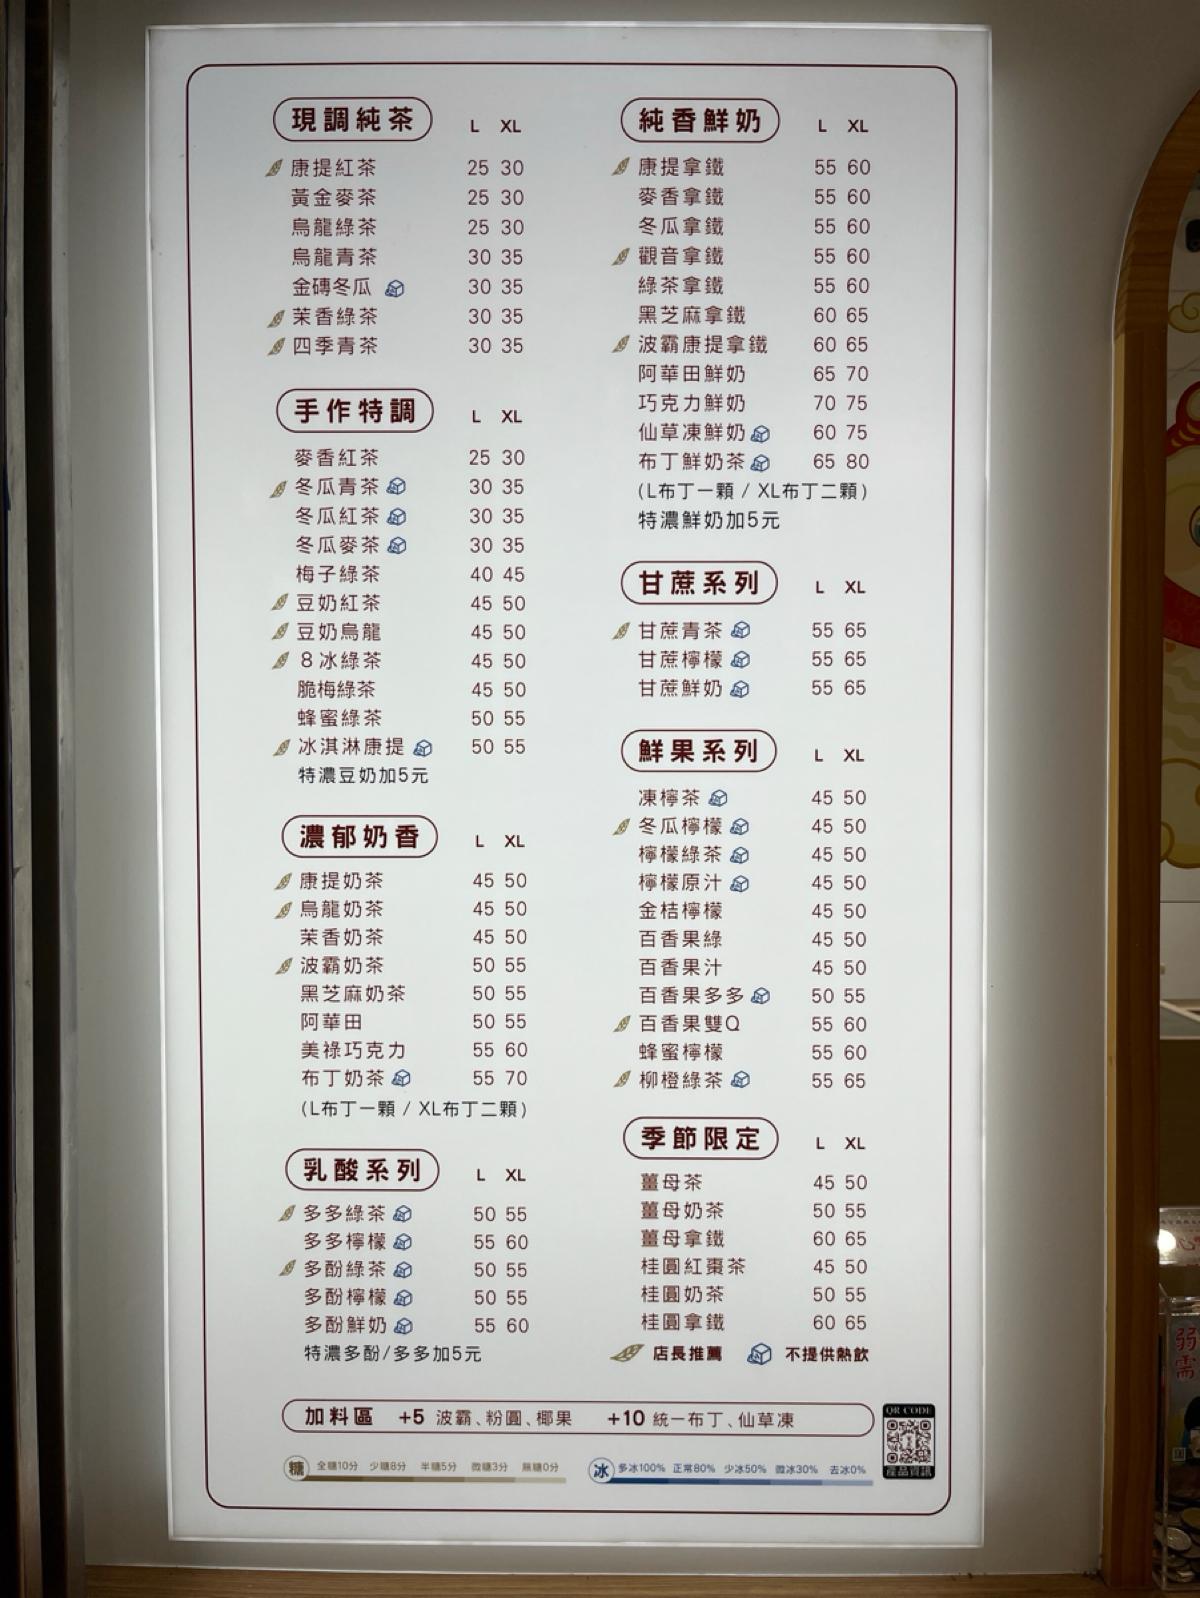 現調純茶 L XL
康提紅茶 25 30
黃金麥茶 25 30
烏龍綠茶 25 30
烏龍青茶 30 35
金磚冬瓜 30 35
茉香綠茶 30 35
四季青茶 30 35
手作特調 L XL
麥香紅茶 25 30
冬瓜青茶 30 35
冬瓜紅茶 30 35
冬瓜麥茶 30 35
梅子綠茶 40 45
豆奶紅茶 45 50
豆奶烏龍 45 50
8冰綠茶 45 50
脆梅綠茶 45 50
蜂蜜綠茶 50 55
冰淇淋康提 50 55
特濃豆奶加5元
濃郁奶香 L XL
康提奶茶 45 50
烏龍奶茶 45 50
茉香奶茶 45 50
波霸奶茶 50 55
黑芝麻奶茶 50 55
阿華田 50 55
美祿巧克力 55 60
布丁奶茶 55 70
(L布丁一顆 / XL布丁二顆)
乳酸系列 L XL
多多綠茶 50 55
多多檸檬 55 60
多酚綠茶 50 55
多酚檸檬 50 55
多酚鮮奶 55 60
特濃多酚/多多加5元
純香鮮奶 L XL
康提拿鐵 55 60
麥香拿鐵 55 60
冬瓜拿鐵 55 60
觀音拿鐵 55 60
綠茶拿鐵 55 60
黑芝麻拿鐵 60 65
波霸康提拿鐵 60 65
阿華田鮮奶 65 70
巧克力鮮奶 70 75
仙草凍鮮奶 60 75
布丁鮮奶茶 65 80
(L布丁一顆 / XL布丁二顆)
特濃鮮奶加5元
甘蔗系列 L XL
甘蔗青茶 55 65
甘蔗檸檬 55 65
甘蔗鮮奶 55 65
鮮果系列 L XL
凍檸茶 45 50
冬瓜檸檬 45 50
檸檬綠茶 45 50
檸檬原汁 45 50
金桔檸檬 45 50
百香果綠 45 50
百香果汁 45 50
百香果多多 50 55
百香果雙Q 55 60
蜂蜜檸檬 55 60
柳橙綠茶 55 65
季節限定 L XL
薑母茶 45 50
薑母奶茶 50 55
薑母拿鐵 60 65
桂圓紅棗茶 45 50
桂圓奶茶 50 55
桂圓拿鐵 60 65
店長推薦 不提供熱飲
加料區 +5 波霸、粉圓、椰果 +10 統一布丁、仙草凍
糖 全糖10分 少糖8分 半糖5分 微糖3分 無糖0分
冰 多冰100% 正常80% 少冰50% 微冰30% 去冰0%
QR CODE
產品資訊
弱
需